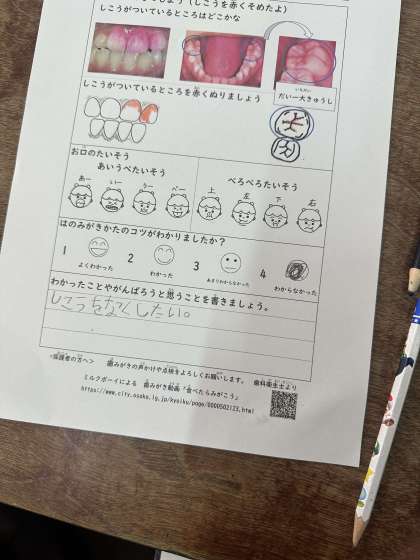 しよう（しこうを赤くそめたよ）
しこうがついているところはどこかな
いちだい
だい一大きゅうし
しこうがついているところを赤くぬりましょう
お口のたいそう
あいうべたいそう
べろべろたいそう
あー いー うー べー 上 左 下 右
はのみがきかたのコツがわかりましたか？
1 2 3 4
よくわかった わかった あまりわからなかった わからなかった
わかったことやがんばろうと思うことを書きましょう。
しこうをなくしたい。
<保護者の方へ> 歯みがきの声かけや点検をよろしくお願いします。 歯科衛生士より
ミルクボーイによる 歯みがき動画「食べたらみがこう」
https://www.city.osaka.lg.jp/kyoiku/page/0000502123.html